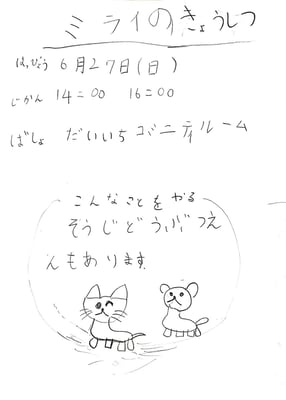 ミライのきょうしつ
はっぴょう 6月27日(日)
じかん 14:00 16:00
ばしょ だいいちコミニティルーム
こんなことをやる
ぞうじどうぶつえ
んもあります